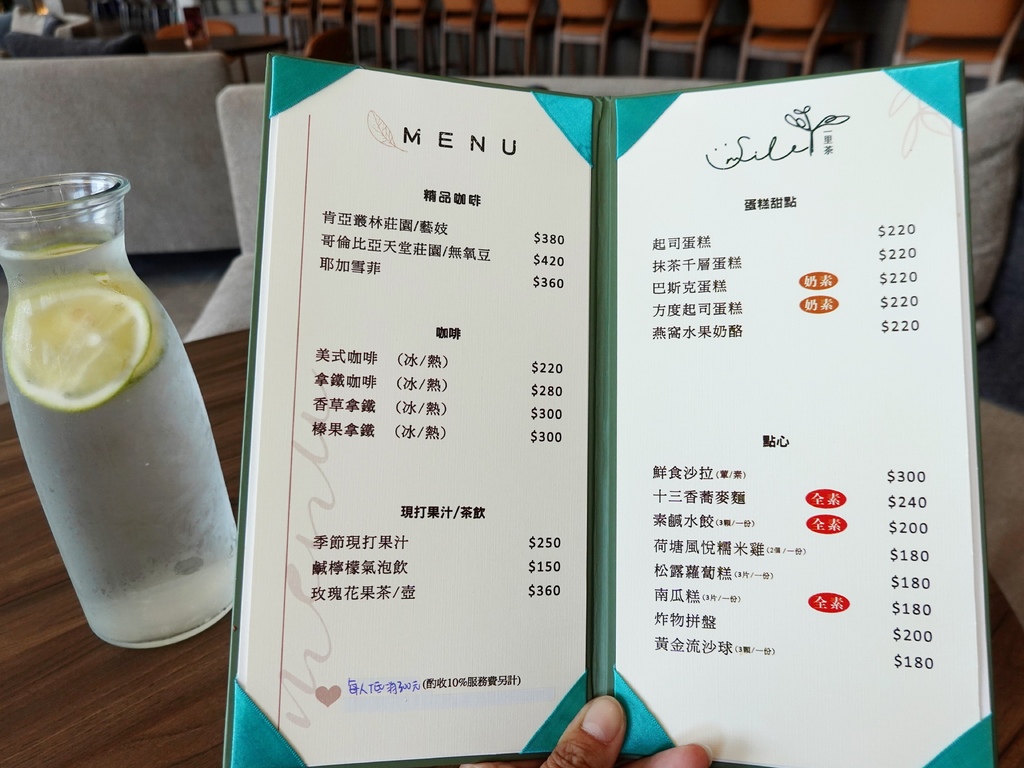 MENU
精品咖啡
肯亞叢林莊園/藝妓 $380
哥倫比亞天堂莊園/無氧豆 $420
耶加雪菲 $360
咖啡
美式咖啡 （冰/熱） $220
拿鐵咖啡 （冰/熱） $280
香草拿鐵 （冰/熱） $300
榛果拿鐵 （冰/熱） $300
現打果汁/茶飲
季節現打果汁 $250
鹹檸檬氣泡飲 $150
玫瑰花果茶/壺 $360
menu
每人低消300元(酌收10%服務費另計)
一里茶
蛋糕甜點
起司蛋糕 $220
抹茶千層蛋糕 $220
巴斯克蛋糕 奶素 $220
方度起司蛋糕 奶素 $220
燕窩水果奶酪 $220
點心
鮮食沙拉(葷/素) $300
十三香蕎麥麵 全素 $240
素鹹水餃(3顆/一份) 全素 $200
荷塘風悅糯米雞(2個/一份) $180
松露蘿蔔糕(3片/一份) $180
南瓜糕(3片/一份) 全素 $180
炸物拼盤 $200
黃金流沙球(3顆/一份) $180